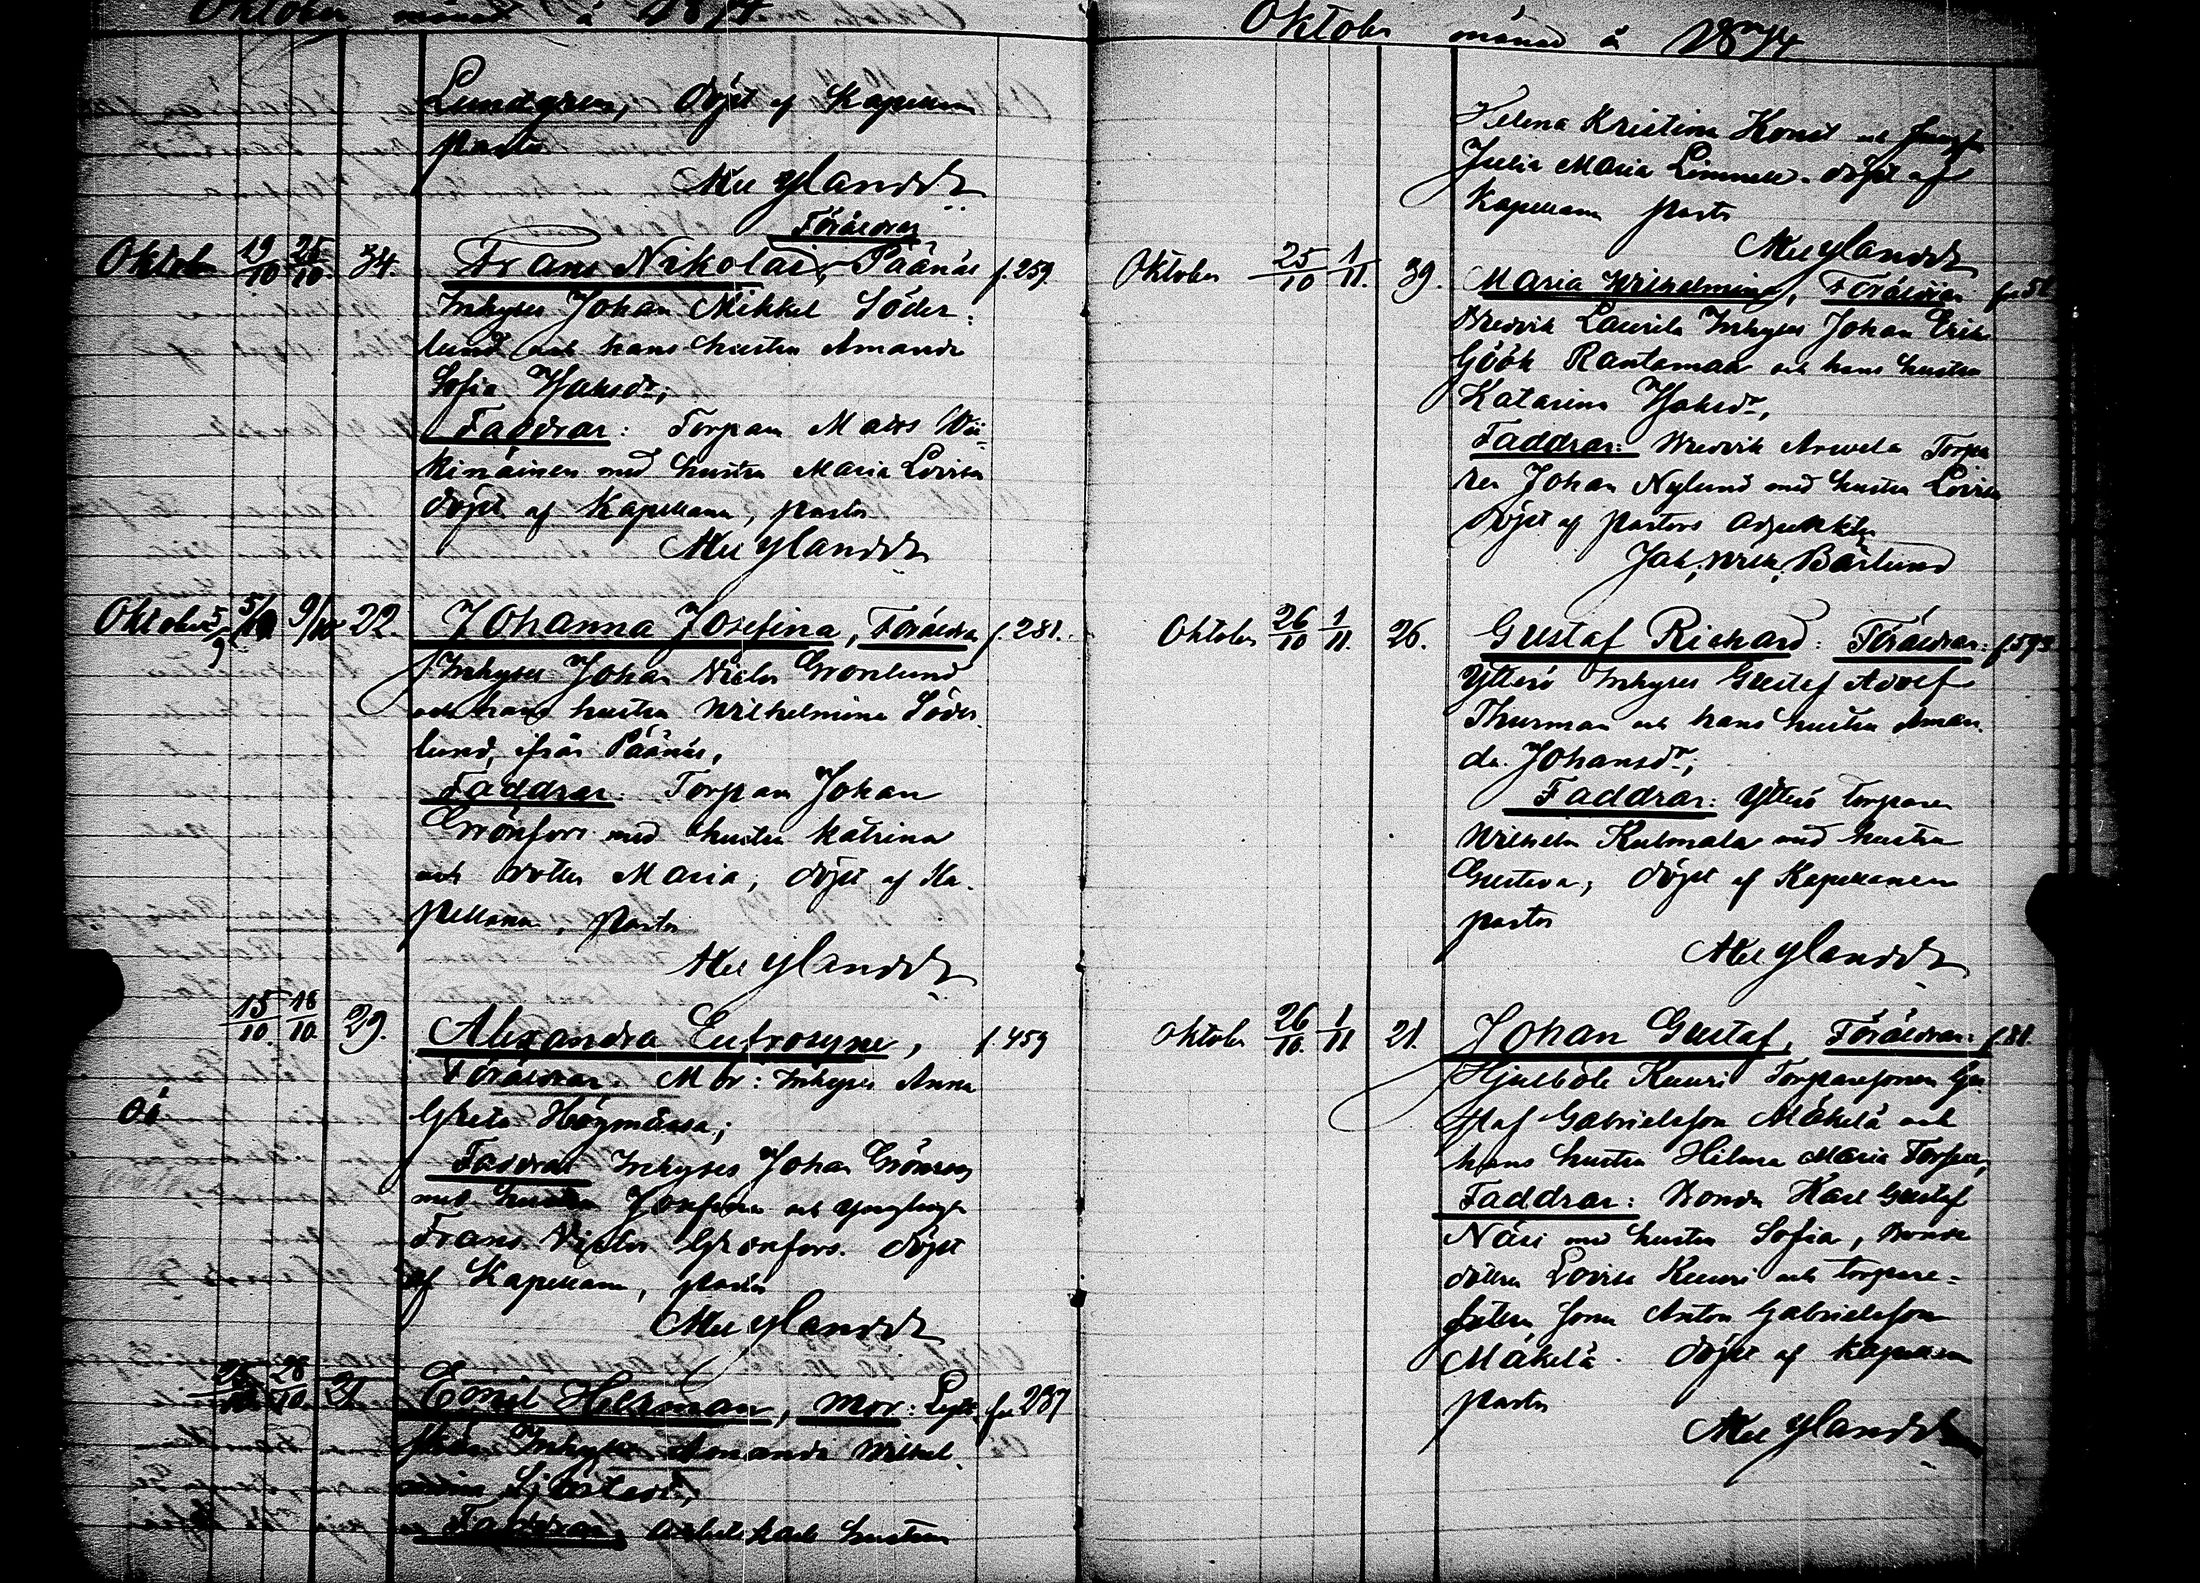 Oktober månad å 1874
Lundgren, döpt af Kapellan
pastor
Ax Ylandér
Föräldrar
Oktob 19/10 25/10 34. Frans Nikolai, Päänäs f. 259.
Inhyses Johan Mikkel Söder-
lund och hans hustru Amanda
Sofia Jsaksdr;
Faddrar: Torparn Mats Wii-
kinäinen med hustru Maria Lovisa
döpt af Kapellann, pastor
Ylandér
Oktober 5/10 9/10 22. Johanna Josefina, Föräldrar f. 281.
Inhyses Johan Victor Grönlund
och hans hustru Wilhelmina Söder-
lund, från Päänäs,
Faddrar: Torparn Johan
Grönfors med hustru Katrina
och dotter Maria, döpt af Ka-
pellann, pastor
Ylandér
15/10. 18/10. 29. Alexandra Eufrosyne, f. 459
Föräldrar. Mor: Inhyses Anna
Oä Greta Högmänsa;
Faddrar Inhyses Johan
med hustru Josefina och ynglingen
Frans Victor Grönfors. döpt
af Kapellann, pastor
Ylandér
28/10 21. Emil Herman, Mor: f. 287
från Inhyses Amanda Wilhel-
mina Sjöstedt,
Faddrar, arbetskarls hustrun
Oktober månad å 1874.
Helena Kristina Konst och
Julia Maria döpt af
Kapellann pastor
Ylandér
Oktober 25/10 1/11. 39. Maria Wilhelmina, Föräldrar
Laurila Inhyses Johan Erik
Göök Rantamaa och hans hustru
Katarina Jsaksdr,
Faddrar: Arvela Torpa
ren Johan Nylund med hustru Lovisa
döpt af pastors adjunkten
Jak. Wilh. Bärlund
Oktober 26/10 1/11. 26. Gustaf Richard: Föräldrar: f. 593
Ytterö Inhyses Gustaf Adolf
Thurman och hans hustru Aman-
da Johansdr;
Faddrar: Ytterö torparen
Wilhelm Kulmala med hustru
Gustava, döpt af Kapellanen
pastor
Ylandér
Oktober 26/10. 1/11 21. Johan Gustaf, Föräldrar: f. 81.
Hjulböle Kuuri Torparesonen Gu
staf Gabrielsson Mäkelä och
hans hustru Hilma Maria
Faddrar: Bonden Karl Gustaf
Näsi med hustru Sofia, Bonde
dottern Lovisa Kuuri och torpare-
Anton Gabrielsson
Mäkelä. döpt af Kapellan
pastor
Ylandér